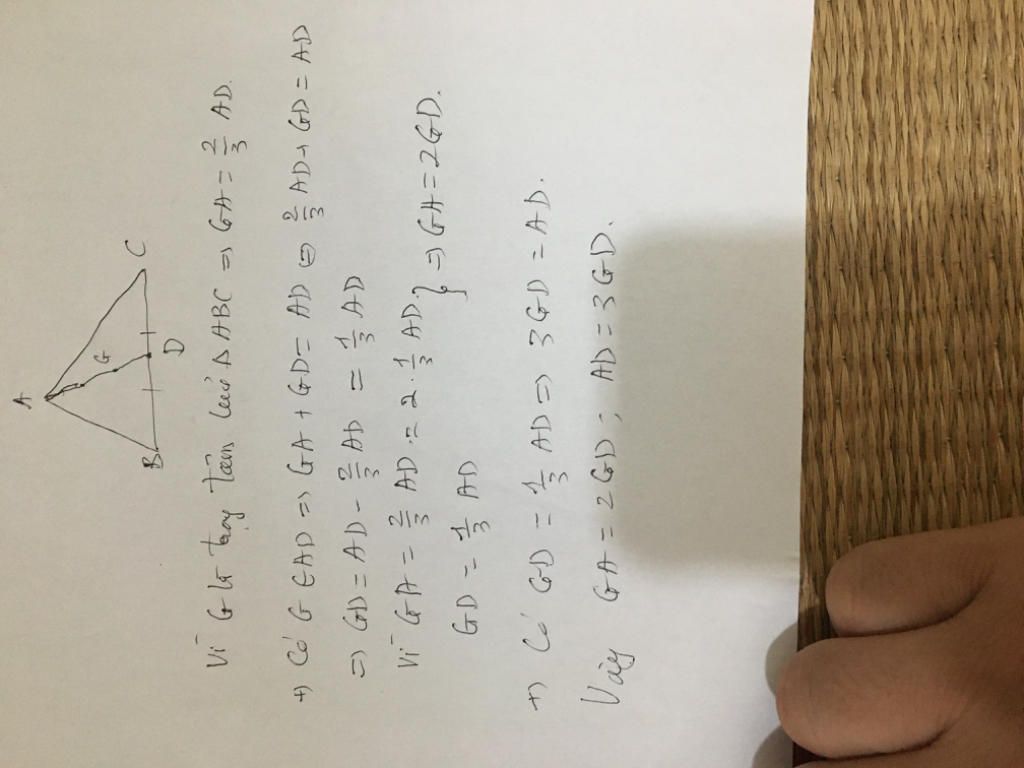 A
G
B
D
C
Vì G là trọng tâm của Δ ABC => GA = 2/3 AD.
+) Có G ∈ AD => GA + GD = AD <=> 2/3 AD + GD = AD
=> GD = AD - 2/3 AD = 1/3 AD
Vì GA = 2/3 AD = 2 . 1/3 AD. } => GA = 2GD.
GD = 1/3 AD
+) Có GD = 1/3 AD => 3GD = AD.
Vậy GA = 2GD ; AD = 3GD.